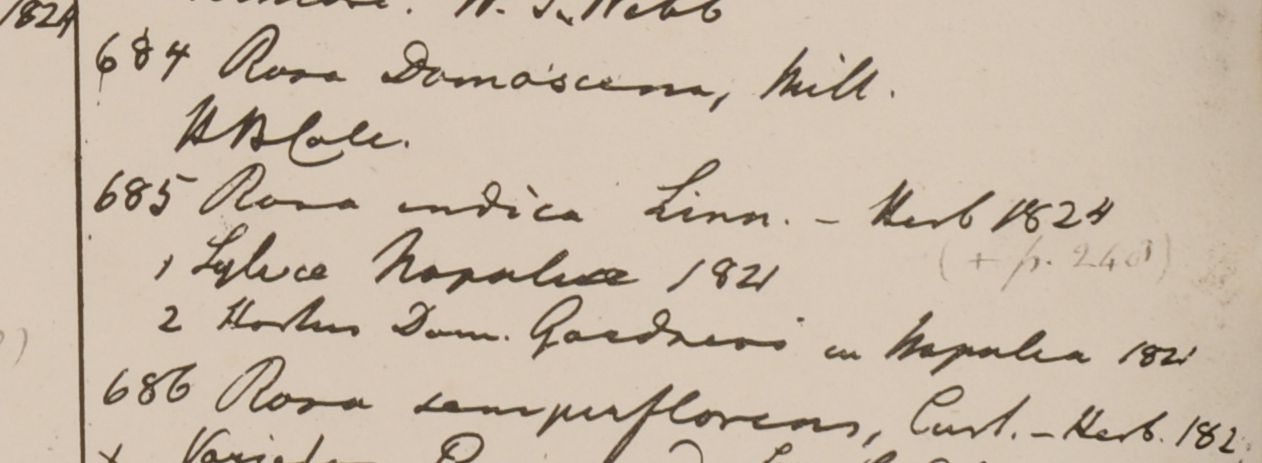 1824
W. S. Webb
684 Rosa Damascena, Mill.
H B Cole.
685 Rosa indica Linn. - Herb 1824
(+ p. 240)
1 Sylvae Napaliae 1821
2 Hortus Dom. Gardneri in Napalia 1821
686 Rosa semperflorens, Curt. - Herb. 182